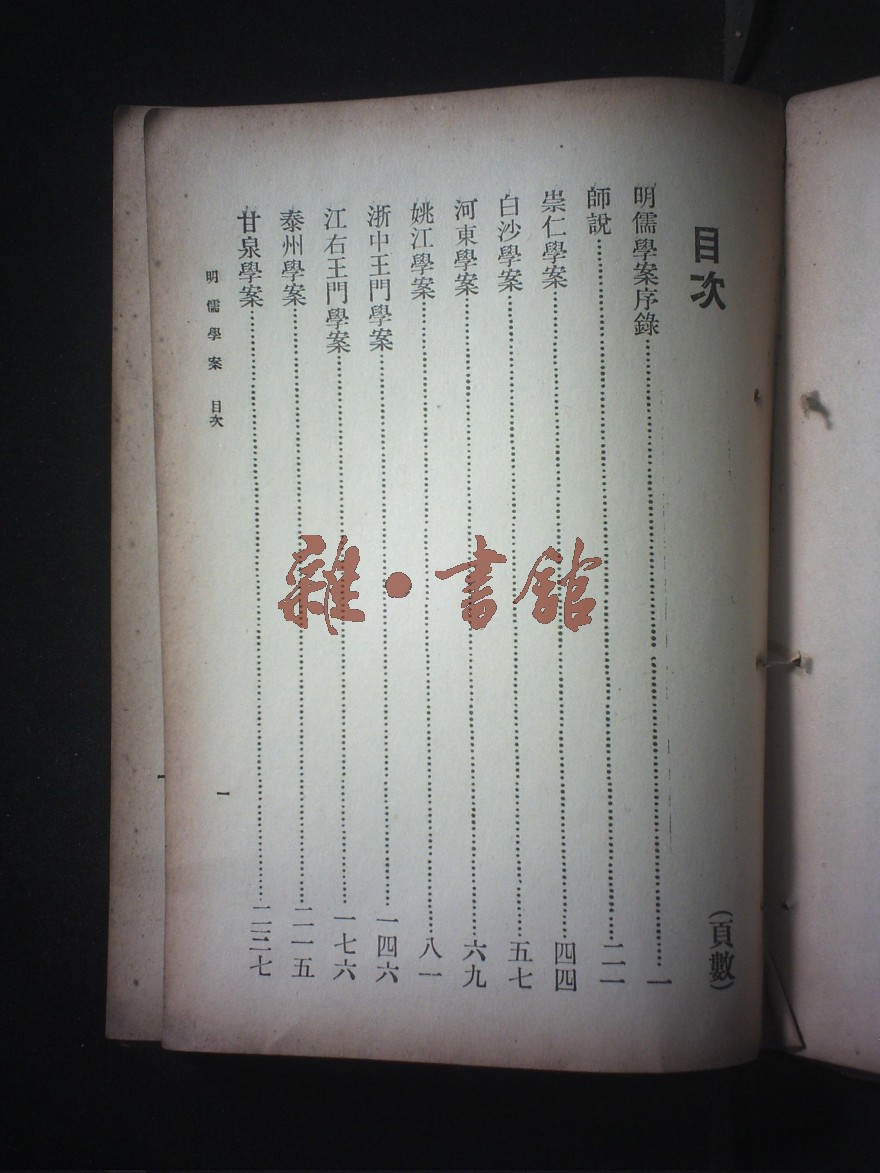 目次
(頁數)
明儒學案序錄……一
師說……二一
崇仁學案……四四
白沙學案……五七
河東學案……六九
姚江學案……八一
浙中王門學案……一四六
江右王門學案……一七六
泰州學案……二一五
甘泉學案……二三七
明儒學案 目次
一
雜·書館